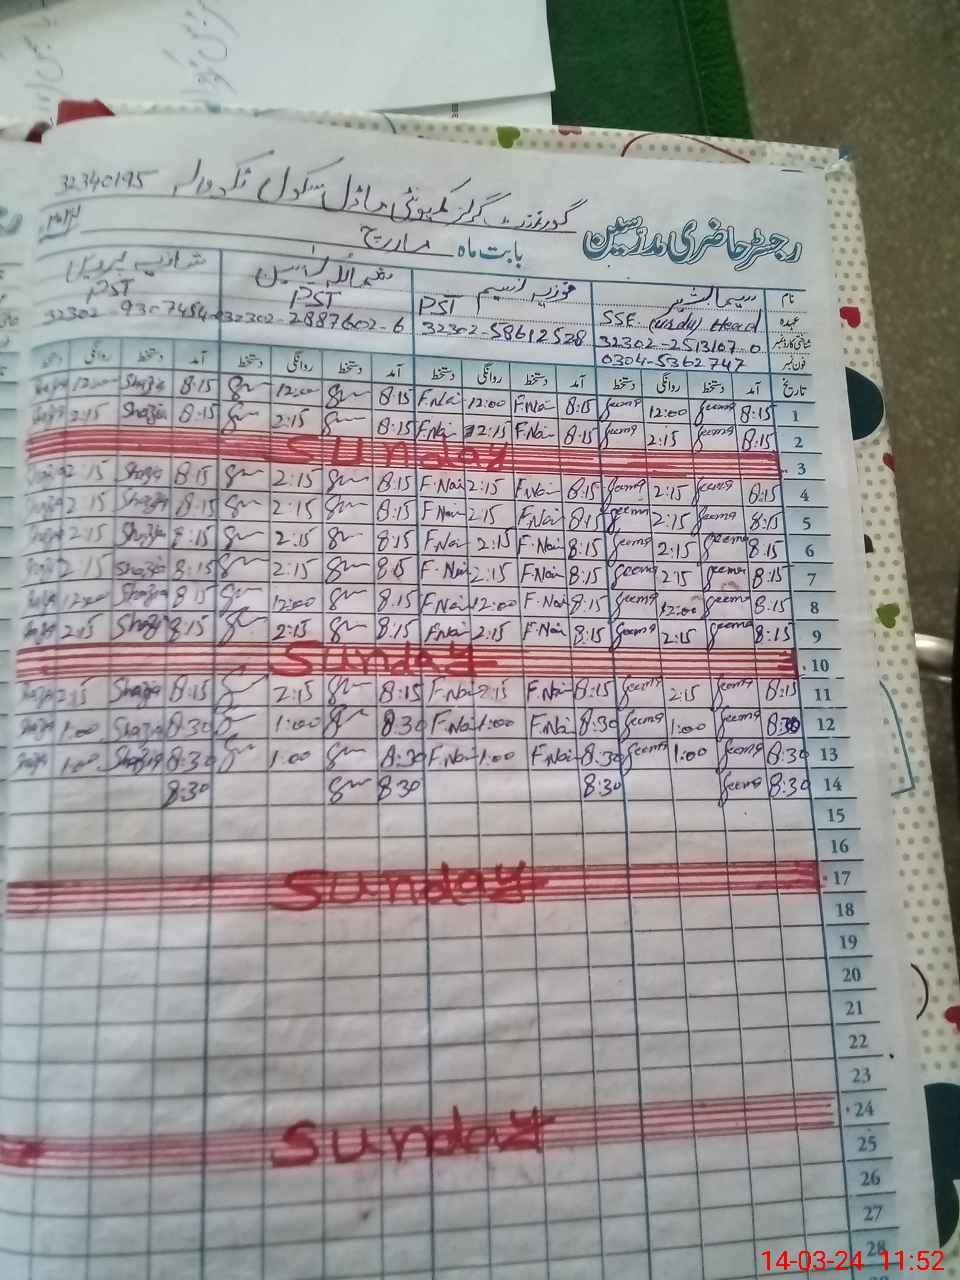 32340195 گورنمنٹ گرلز کمیونٹی ماڈل سکول
رجسٹر حاضری مدرسین بابت ماہ مارچ
نام سیما فوزیہ نسیم شازیہ پروین
عہدہ SSE (urdu) Head PST PST PST
شناختی کارڈ نمبر 32302-2513167-0 32302-5861252 32302-2887602-6 32302-9307454
فون نمبر 0304-5362747
تاریخ آمد دستخط روانگی دستخط آمد دستخط روانگی دستخط آمد دستخط روانگی دستخط آمد دستخط روانگی دستخط
1 8:15 Seema 12:00 Seema 8:15 F.Nai 12:00 F.Nai 8:15 12:00 8:15 Shazia 12:00
2 8:15 Seema 2:15 Seema 8:15 F.Nai 2:15 F.Nai 8:15 2:15 8:15 Shazia 2:15
3 Sunday
4 8:15 Seema 2:15 Seema 8:15 F.Nai 2:15 F.Nai 8:15 2:15 8:15 Shazia 2:15
5 8:15 Seema 2:15 Seema 8:15 F.Nai 2:15 F.Nai 8:15 2:15 8:15 Shazia 2:15
6 8:15 Seema 2:15 Seema 8:15 F.Nai 2:15 F.Nai 8:15 2:15 8:15 Shazia 2:15
7 8:15 Seema 2:15 Seema 8:15 F.Nai 2:15 F.Nai 8:15 2:15 8:15 Shazia 2:15
8 8:15 Seema 12:00 Seema 8:15 F.Nai 12:00 F.Nai 8:15 12:00 8:15 Shazia 12:00
9 8:15 Seema 2:15 Seema 8:15 F.Nai 2:15 F.Nai 8:15 2:15 8:15 Shazia 2:15
10 Sunday
11 8:15 Seema 2:15 Seema 8:15 F.Nai 2:15 F.Nai 8:15 2:15 8:15 Shazia 2:15
12 8:30 Seema 1:00 Seema 8:30 F.Nai 1:00 F.Nai 8:30 1:00 8:30 Shazia 1:00
13 8:30 Seema 1:00 Seema 8:30 F.Nai 1:00 F.Nai 8:30 1:00 8:30 Shazia 1:00
14 8:30 Seema 8:30 8:30 8:30
15
16
17 Sunday
18
19
20
21
22
23
24 Sunday
25
26
27
28
14-03-24 11:52